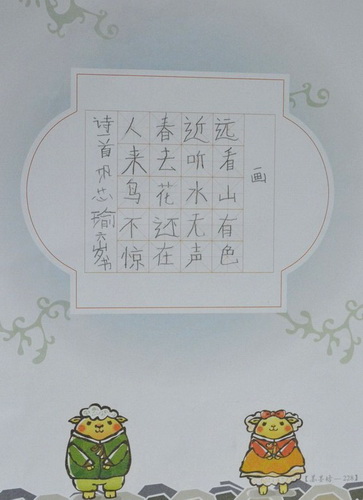 画
远看山有色
近听水无声
春去花还在
人来鸟不惊
诗一首 芯瑜六岁书